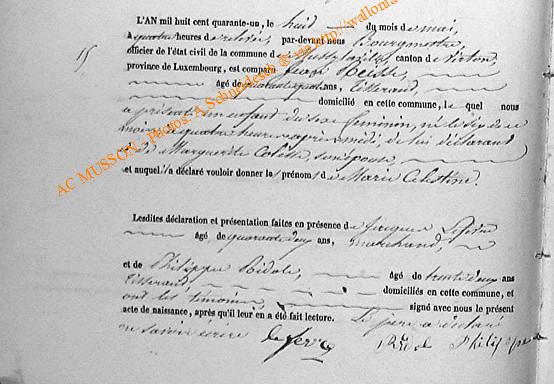 L'AN mil huit cent quarante-un, le huit du mois de mai,
à quatre heures de relevée, par-devant nous Bourgmestre,
15
officier de l'état civil de la commune de canton de Virton,
province de Luxembourg, est comparu Jean
âgé de quarante ans, tisserand,
domicilié en cette commune, le quel nous
a présenté un enfant du sexe féminin, né le six de ce
mois à quatre heures après midi, de lui déclarant
et de Marguerite son épouse,
et auquel il a déclaré vouloir donner les prénoms de Marie Célestine.
Lesdites déclaration et présentation faites en présence de Jacques Lefevre
âgé de quarante deux ans, marchand,
et de Philippe Ridole, âgé de trente deux ans
tisserand, domiciliés en cette commune, et
ont les témoins signé avec nous le présent
acte de naissance, après qu'il leur en a été fait lecture. Le père a déclaré
ne savoir écrire
AC MUSSON - Photos: A Schneidesch ® via http://wallonia